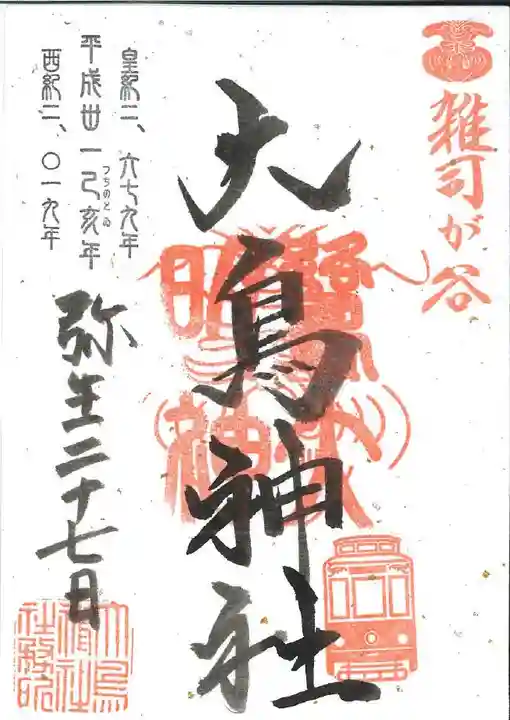 雑司が谷
大鳥神社
皇紀二、六七九年
平成丗一己亥年
つちのとゐ
西紀二、〇一九年
弥生二十七日
大鳥
神社
社務所